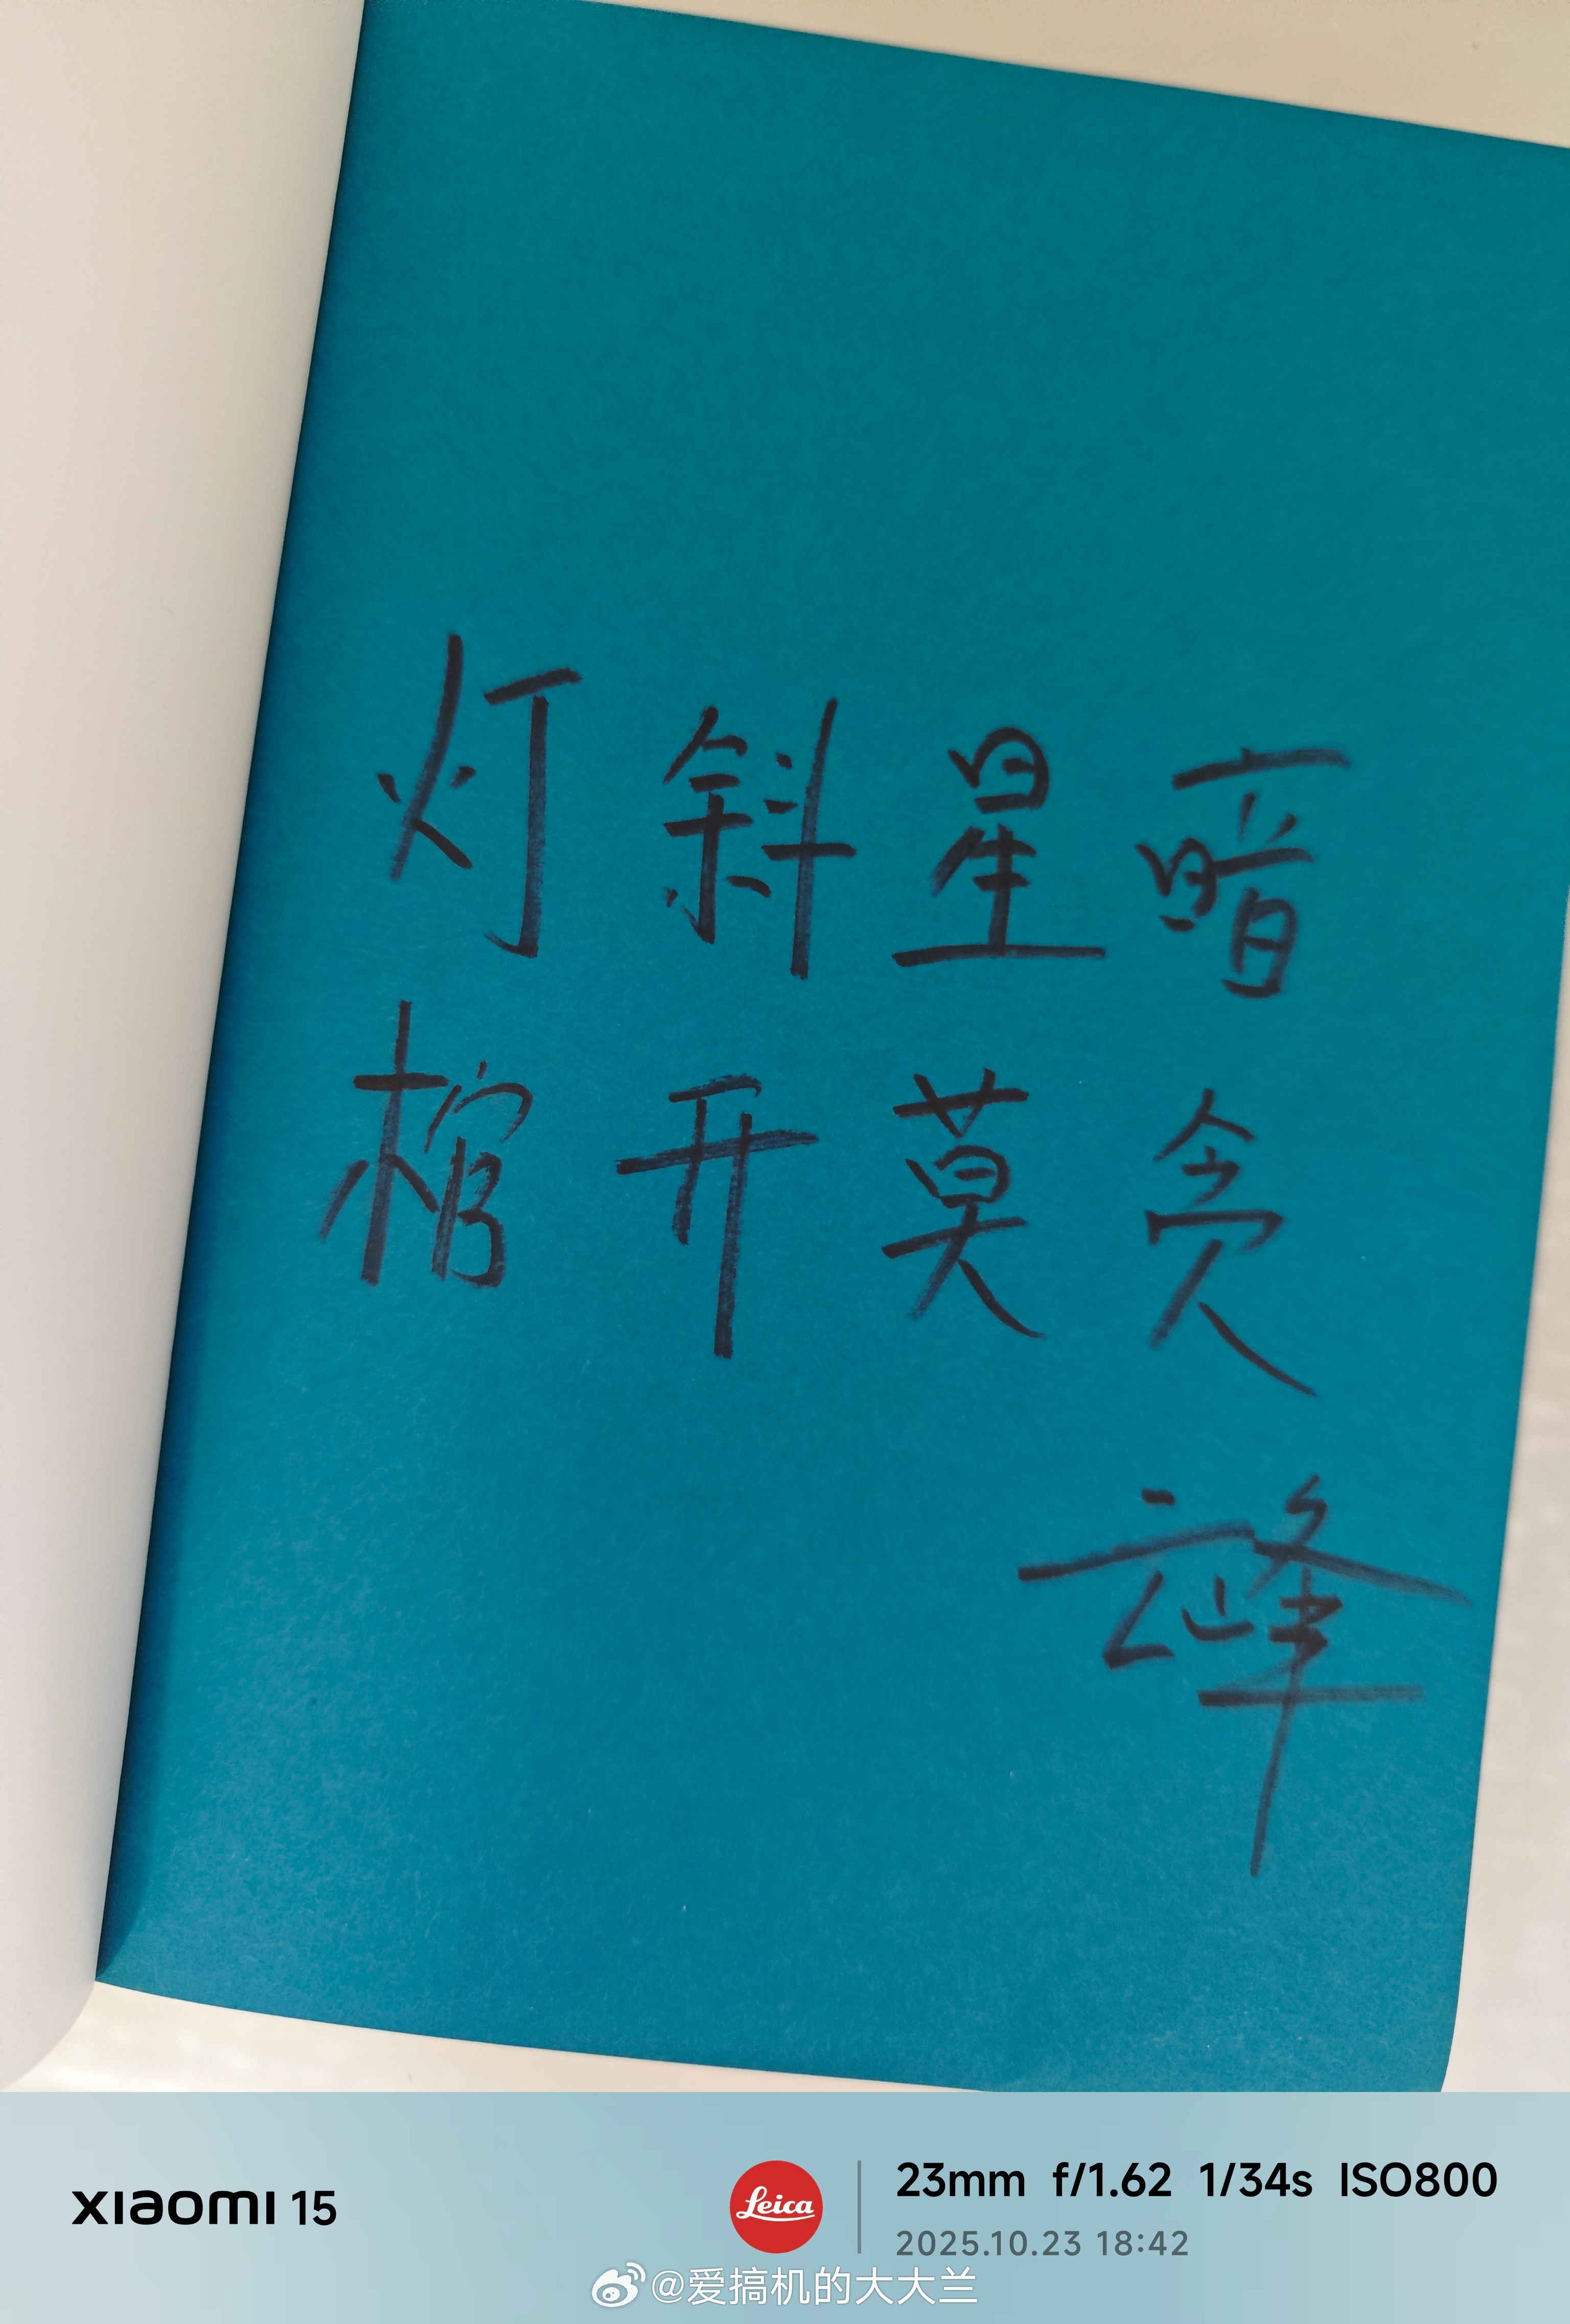 灯斜星暗
棺开莫贪
云峰
XIAOMI 15
Leica
23mm f/1.62 1/34s ISO800
2025.10.23 18:42
@爱搞机的大大兰